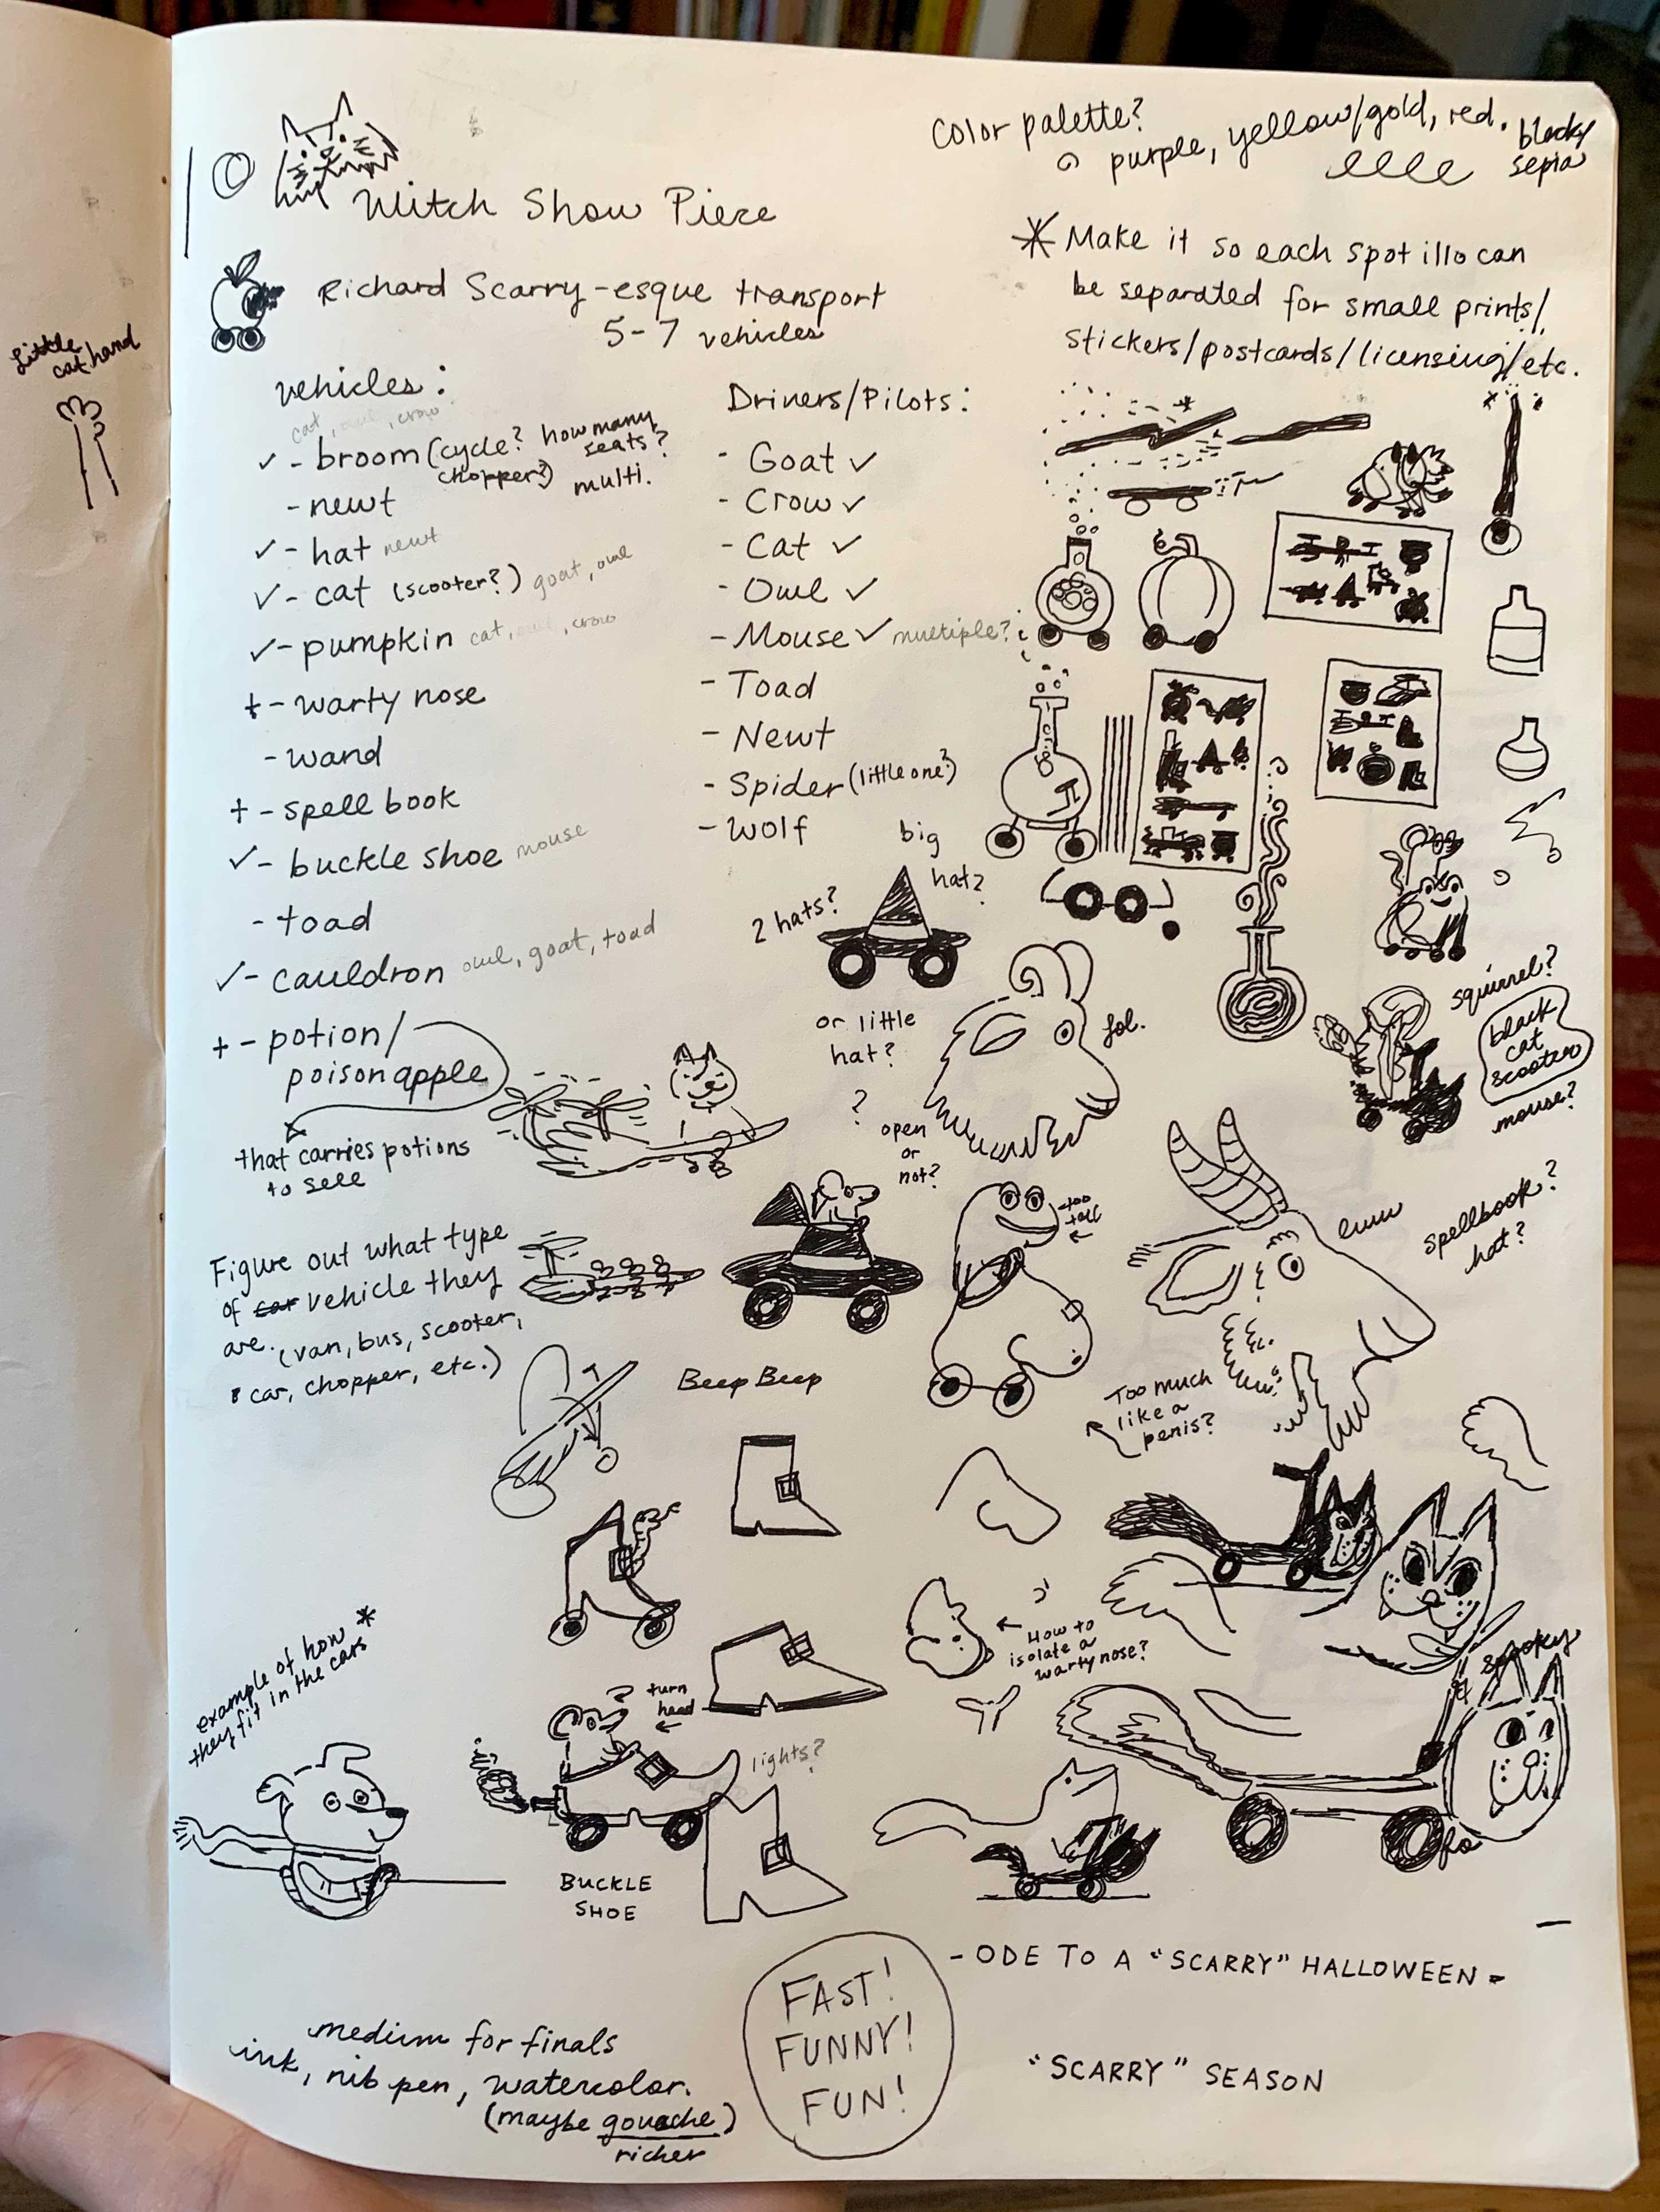 Color palette?
purple, yellow/gold, red. black/
sepia
Witch Show Piece
Richard Scarry-esque transport
5-7 vehicles
* Make it so each spot illo can
be separated for small prints/
stickers/postcards/licensing/etc.
Little
cat hand
vehicles:
cat, owl, crow
✓ - broom (cycle? how many
chopper?) seats?
multi.
- newt
✓ - hat newt
✓ - cat (scooter?) goat, owl
✓ - pumpkin cat, owl, crow
+ - warty nose
- wand
+ - spell book
✓ - buckle shoe mouse
- toad
✓ - cauldron owl, goat, toad
+ - potion/
poison apple
that carries potions
to sell
Drivers/Pilots:
- Goat ✓
- Crow ✓
- Cat ✓
- Owl ✓
- Mouse ✓ multiple?
- Toad
- Newt
- Spider (little one?)
- Wolf
big
hat?
2 hats?
or little
hat?
?
open
or
not?
lol.
squirrel?
black
cat
scooter
mouse?
too
tall
euuu
spellbook?
hat?
Figure out what type
of car vehicle they
are. (van, bus, scooter,
car, chopper, etc.)
Beep Beep
Too much
like a
penis?
How to
isolate a
warty nose?
spooky
example of how *
they fit in the cars
turn
head
lights?
BUCKLE
SHOE
- ODE TO A "SCARRY" HALLOWEEN -
FAST!
FUNNY!
FUN!
"SCARRY" SEASON
medium for finals
ink, nib pen, watercolor.
(maybe gouache)
richer